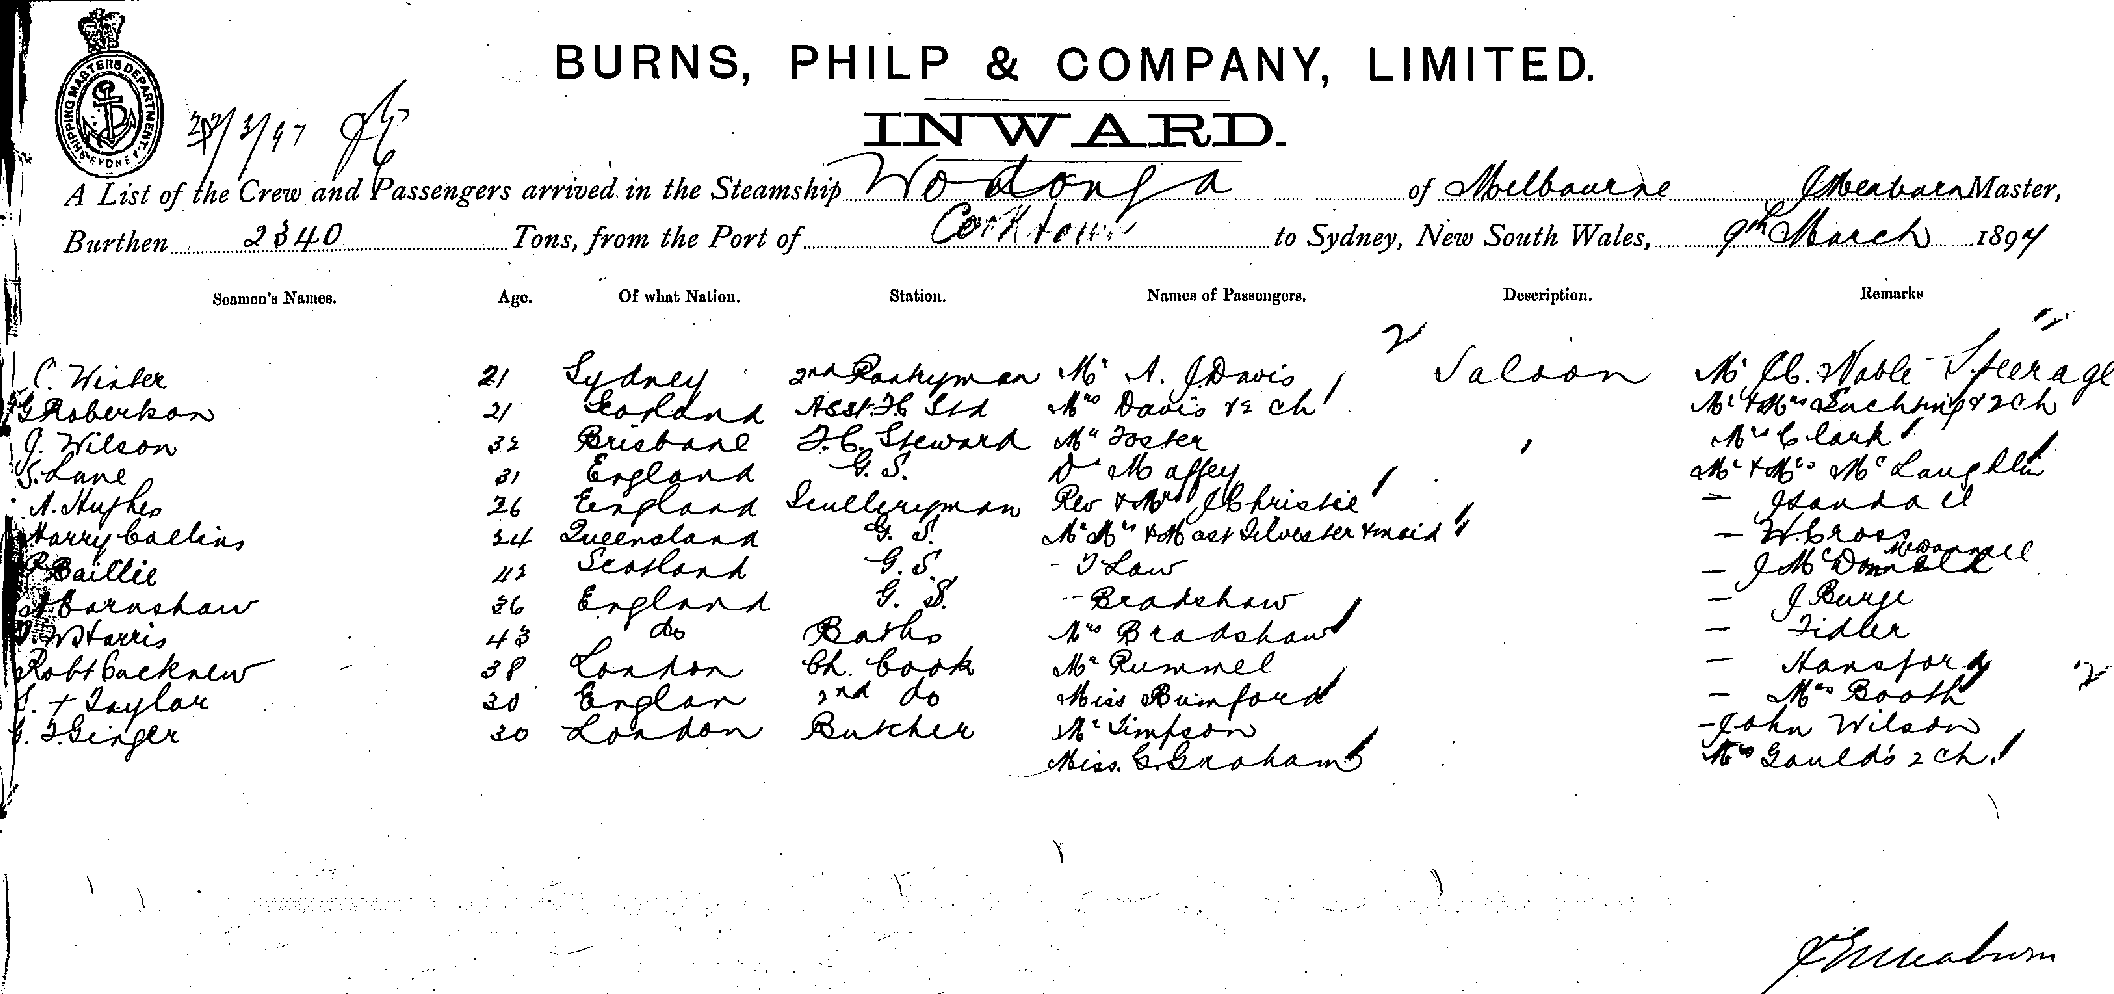 BURNS, PHILP & COMPANY, LIMITED.
INWARD.
SHIPPING MASTERS DEPARTMENT SYDNEY
/3/97
A List of the Crew and Passengers arrived in the Steamship Wodonga of Melbourne J Meaburn Master,
Burthen 2340 Tons, from the Port of Cooktown to Sydney, New South Wales, 9th March 1897
Seamen's Names. Age. Of what Nation. Station. Names of Passengers. Description. Remarks
C. Winter 21 Sydney 2nd Pantryman Mr A. J Davis Saloon Mr Noble - Steerage
G Robertson 21 Asst F C Std Mrs Davis & 2 ch Mr & Mrs & 2 ch
J. Wilson 32 Brisbane F.C. Steward Mr Foster Mrs Clark
S. Lane 31 England G. S. Dr Maffey Mr & Mrs McLaughlin
A. Hughes 26 England Sculleryman Rev & Mrs J Christie -
Harry Collins 34 Queensland G. S. Mr Mrs & Mast Silvester & maid - W Cross
Baillie 42 Scotland G. S. - T Law - J McDonnell
Earnshaw 36 England G. S. - Bradshaw - J Burge
W Harris 43 do Baths Mrs Bradshaw - Fidler
Robt Cucknew 38 London Ch. Cook Mr Rummel - Hansford
S. + Taylor 30 Englan 2nd do Miss Bumford - Mrs Booth 2
G. F. Ginger 30 London Butcher Mr Simpson - John Wilson
Miss. G. Graham Mrs Gould's 2 ch.
J Meaburn